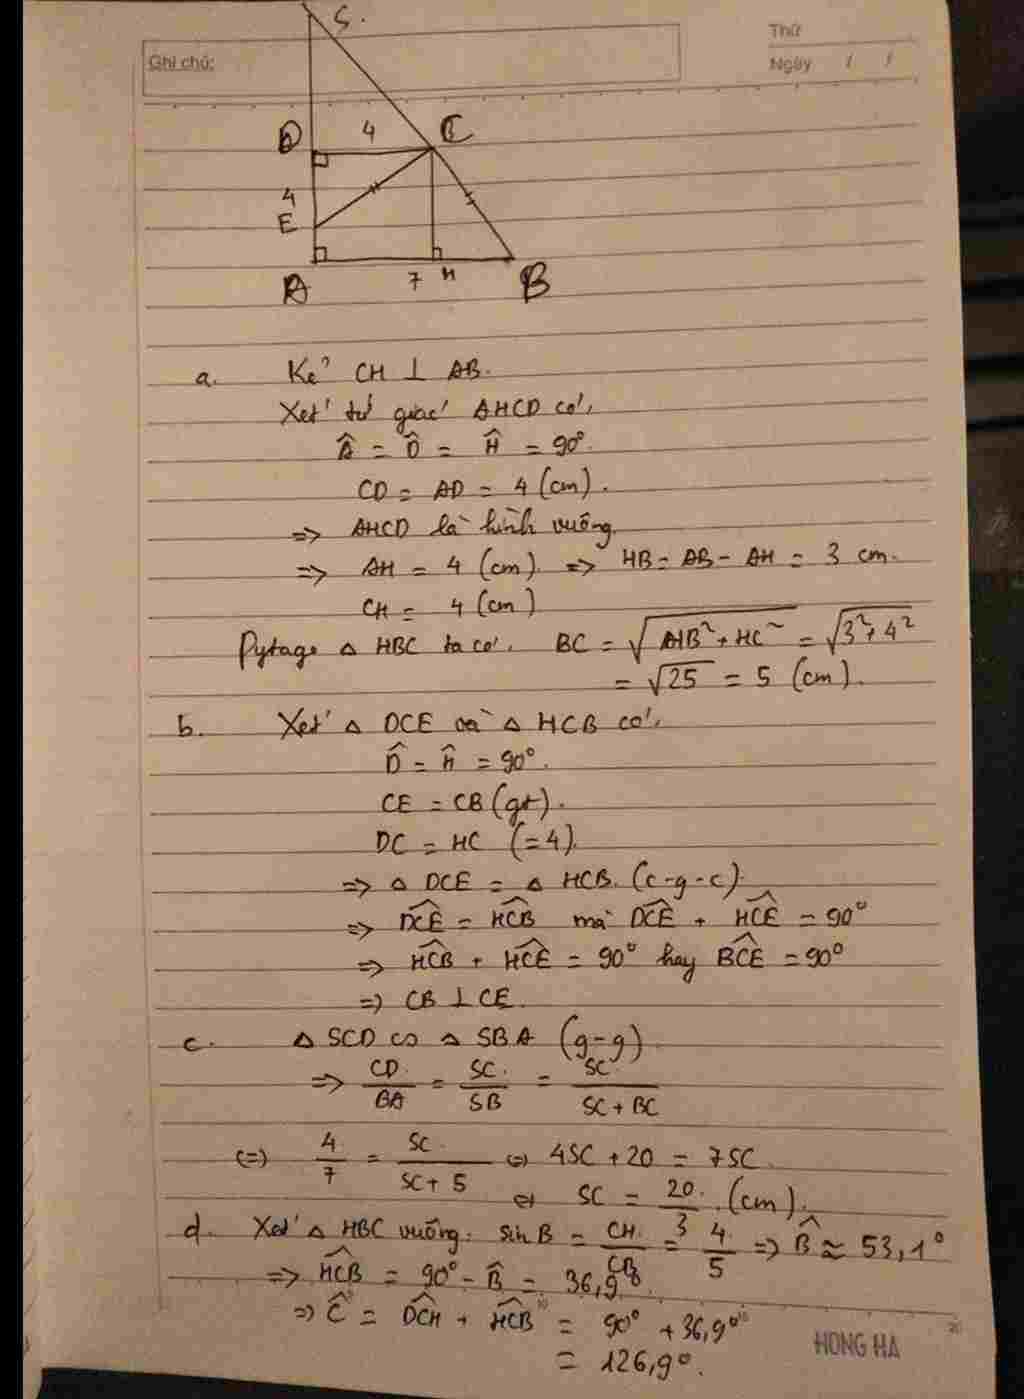 S.
Thứ
Ghi chú:
Ngày / /
D 4 C
4
E
A 7 H B
a. Kẻ CH ⊥ AB.
Xét tứ giác AHCD có:
Â = D̂ = Ĥ = 90°.
CD = AD = 4 (cm).
=> AHCD là hình vuông.
=> AH = 4 (cm) => HB = AB - AH = 3 cm.
CH = 4 (cm)
Pytago △ HBC ta có: BC = √(HB² + HC²) = √(3² + 4²)
= √25 = 5 (cm).
b. Xét △ DCE và △ HCB có:
D̂ = Ĥ = 90°.
CE = CB (gt).
DC = HC (= 4).
=> △ DCE = △ HCB. (c-g-c).
=> DCE^ = HCB^ mà DCE^ + HCE^ = 90°
=> HCB^ + HCE^ = 90° hay BCE^ = 90°
=> CB ⊥ CE.
c. △ SCD ∽ △ SBA (g-g)
=> CD/BA = SC/SB = SC/(SC + BC)
(=) 4/7 = SC/(SC + 5) <=> 4SC + 20 = 7SC
<=> SC = 20/3 (cm).
d. Xét △ HBC vuông: sin B = CH/CB = 4/5 => B̂ ≈ 53,1°
=> HCB^ = 90° - B̂ = 36,9°
=> Ĉ = DCH^ + HCB^ = 90° + 36,9°
= 126,9°.
HONG HA